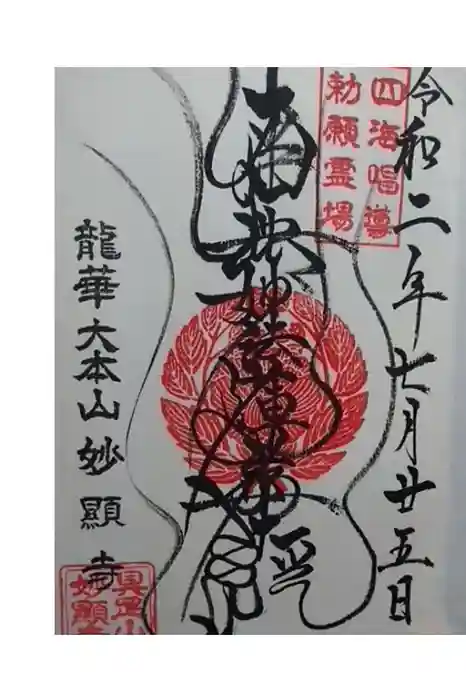 令和二年七月廿五日
四海唱導
勅願霊場
南無妙法蓮華経
龍華大本山妙顯寺